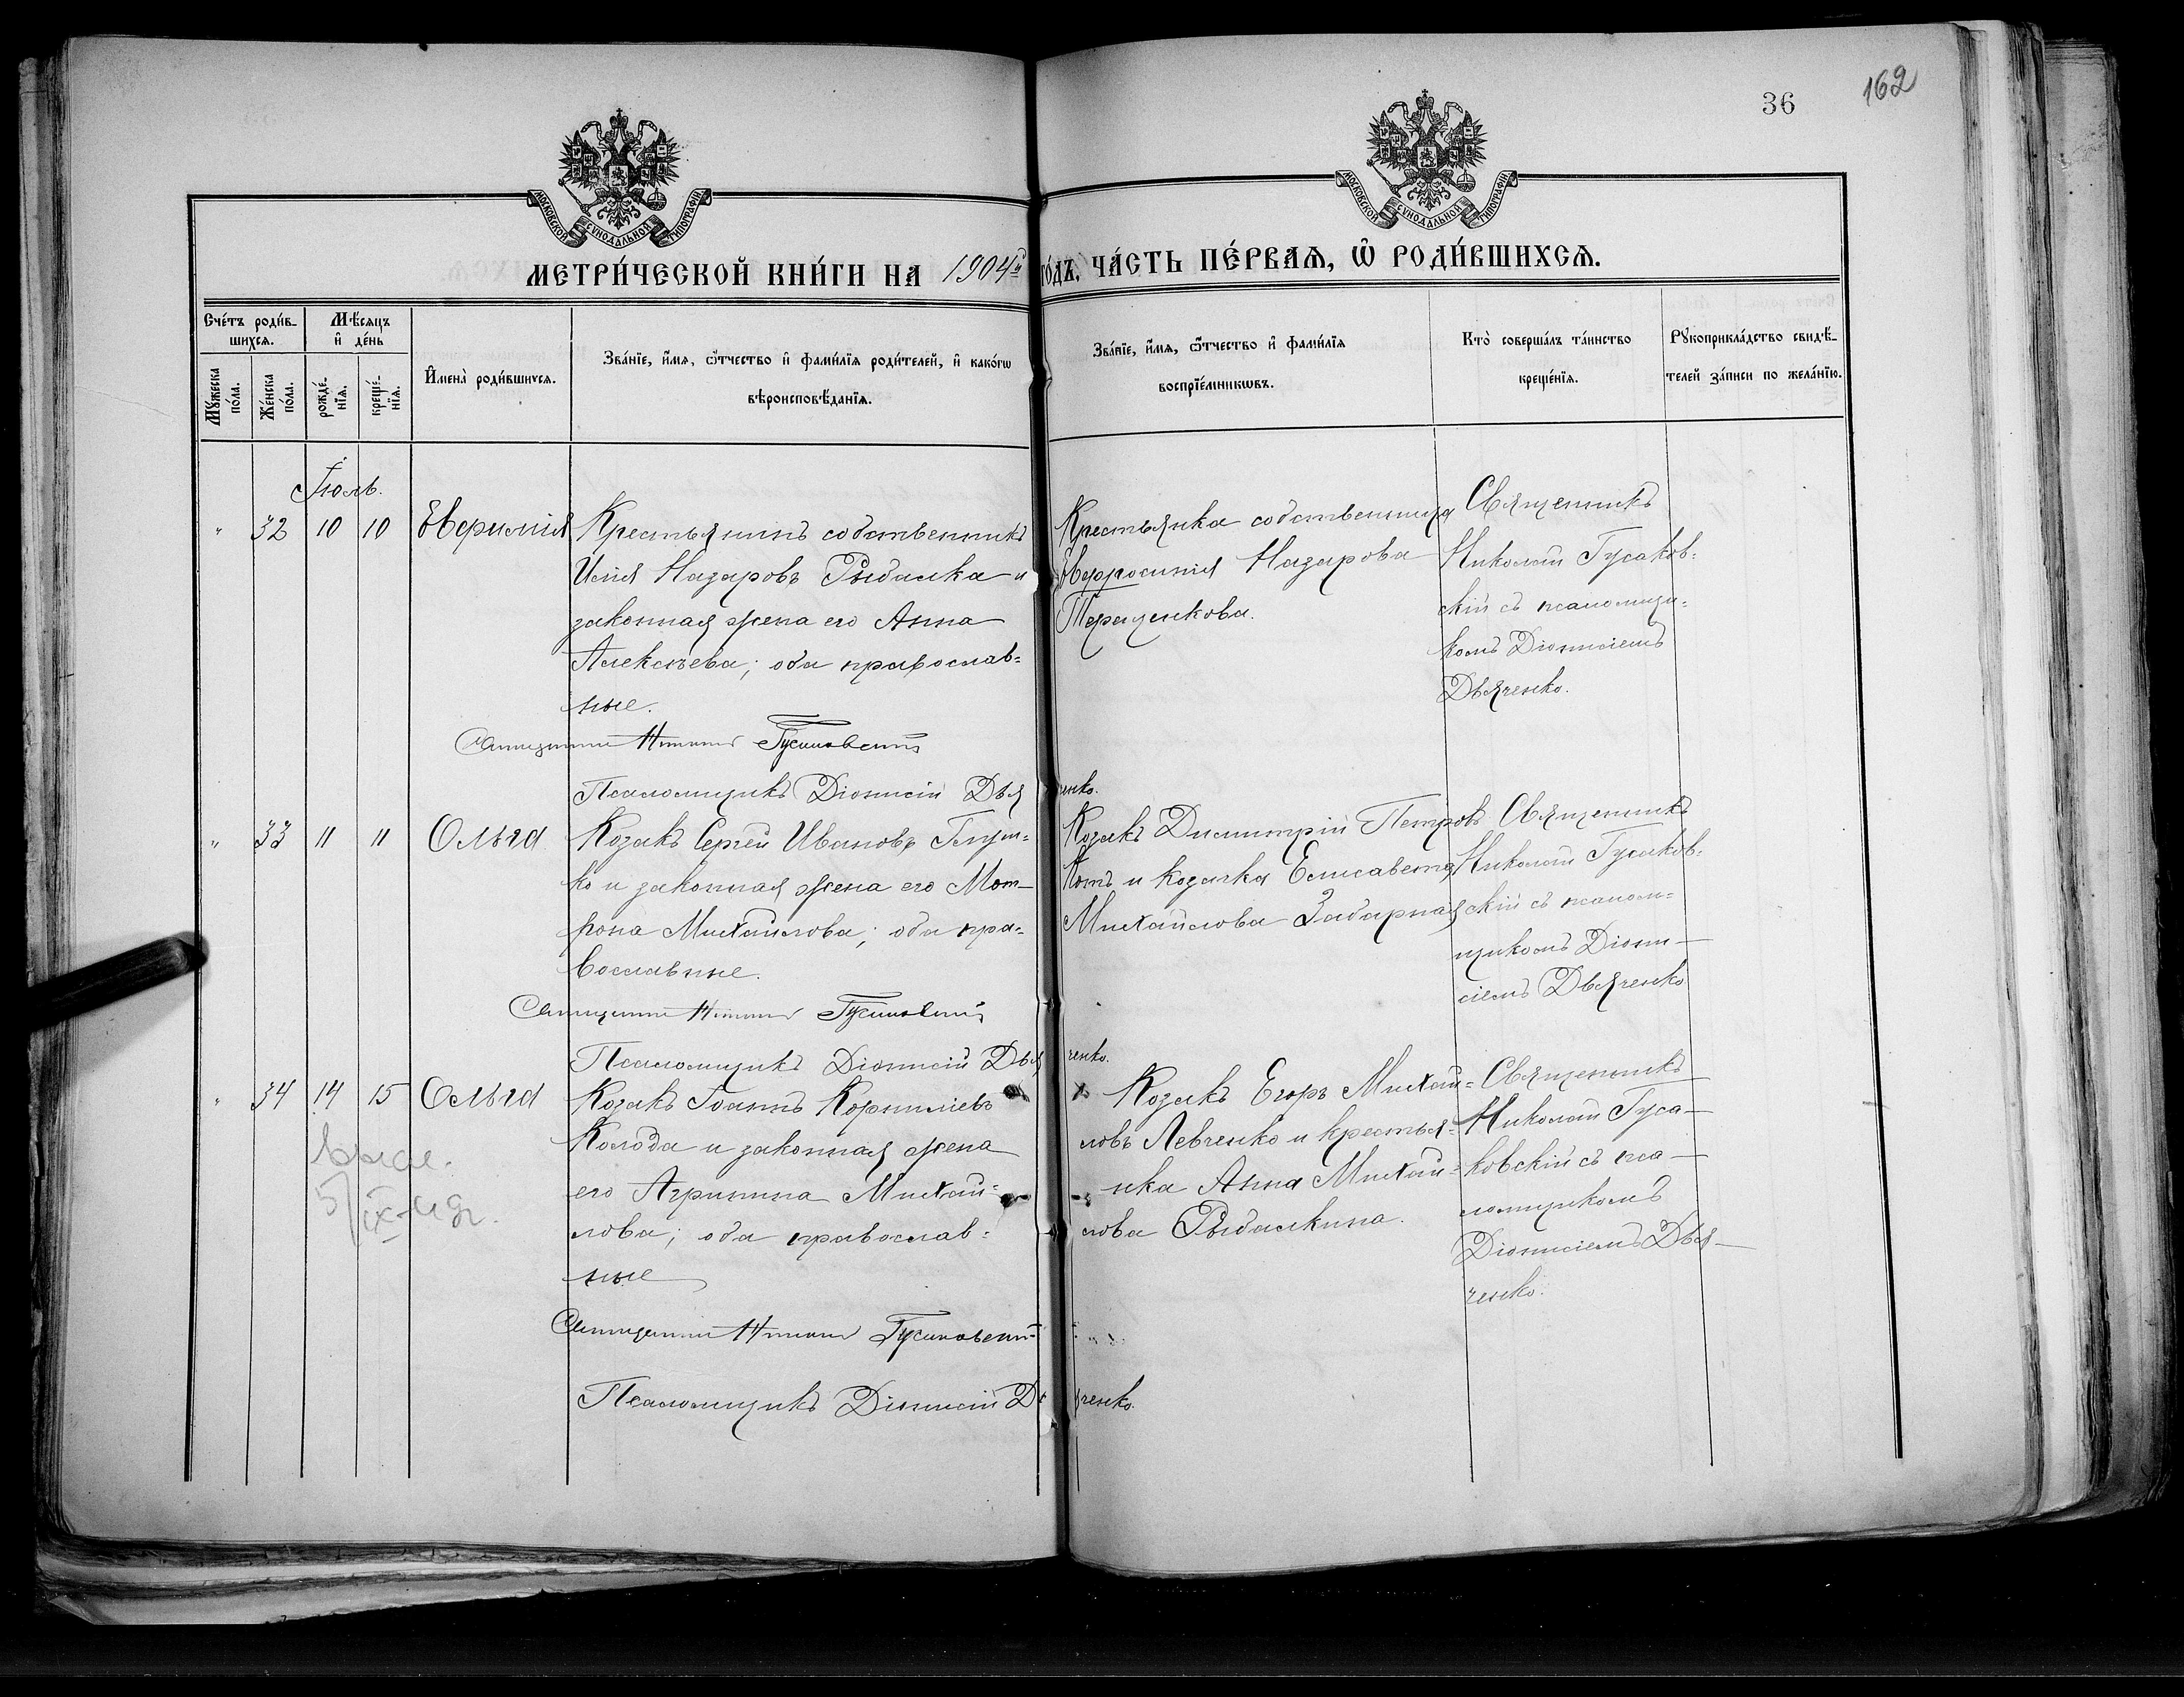 36
162
МОСКОВСКОЙ СѴНОДАЛЬНОЙ ТИПОГРАФІИ
МОСКОВСКОЙ СѴНОДАЛЬНОЙ ТИПОГРАФІИ
МЕТРИ́ЧЕСКОЙ КНИ́ГИ НА 1904й ГО́ДЪ, ЧА́СТЬ ПЕ́РВАѦ, Ѡ҆ РОДИ́ВШИХСѦ.
Сче́тъ роди́в-
шихсѧ.
Мꙋ́жеска по́ла.
Же́нска по́ла.
Мѣ́сѧцъ
и҆ де́нь
рожде́-
нїѧ.
креще́-
нїѧ.
И҆мена̀ роди́вшихсѧ.
Зва́нїе, и҆́мѧ, ѻ҆́тчество и҆ фами́лїѧ роди́телей, и҆ како́гѡ
вѣроисповѣ́данїѧ.
Зва́нїе, и҆́мѧ, ѻ҆́тчество и҆ фами́лїѧ
воспрїе́мникѡвъ.
Кто̀ соверша́лъ та́инство
креще́нїѧ.
Рꙋкоприкла́дство свидѣ́-
телей за́писи по жела́нїю.
Іюль.
" 32 10 10 Евфимія
Крестьянинъ собственникъ
Илія Назаровъ Рыбалка и
законная жена его Анна
Алексѣева; оба православ=
ные.
Крестьянка собственница
Евфросинія Назарова
Терещенкова.
Священникъ
Николай Гусаков=
скій съ псаломщи=
комъ Діонисіемъ
Дьяченко.
Священникъ Николай Гусаковскій
Псаломщикъ Діонисій Дьяченко.
" 33 11 11 Ольга
Козакъ Сергѣй Ивановъ Глуш=
ко и законная жена его Мот-
рона Михайлова; оба пра=
вославные.
Козакъ Димитрій Петровъ
Котъ и козачка Елисавета
Михайлова Забарная
Священникъ
Николай Гусаков=
скій съ псалом=
щикомъ Діони-
сіемъ Дьяченко
Священникъ Николай Гусаковскій
Псаломщикъ Діонисій Дьяченко.
" 34 14 15 Ольга
Козакъ Іоаннъ Корниліевъ
Колода и законная жена
его Агрипина Михай=
лова; оба православ=
ные
Козакъ Егоръ Михай=
ловъ Левченко и крестья=
нка Анна Михай=
лова Рыбалкина.
Священникъ
Николай Гуса-
ковскій съ пса-
ломщикомъ
Діонисіемъ Дья-
ченко.
5/IX
Священникъ Николай Гусаковскій
Псаломщикъ Діонисій Дьяченко.